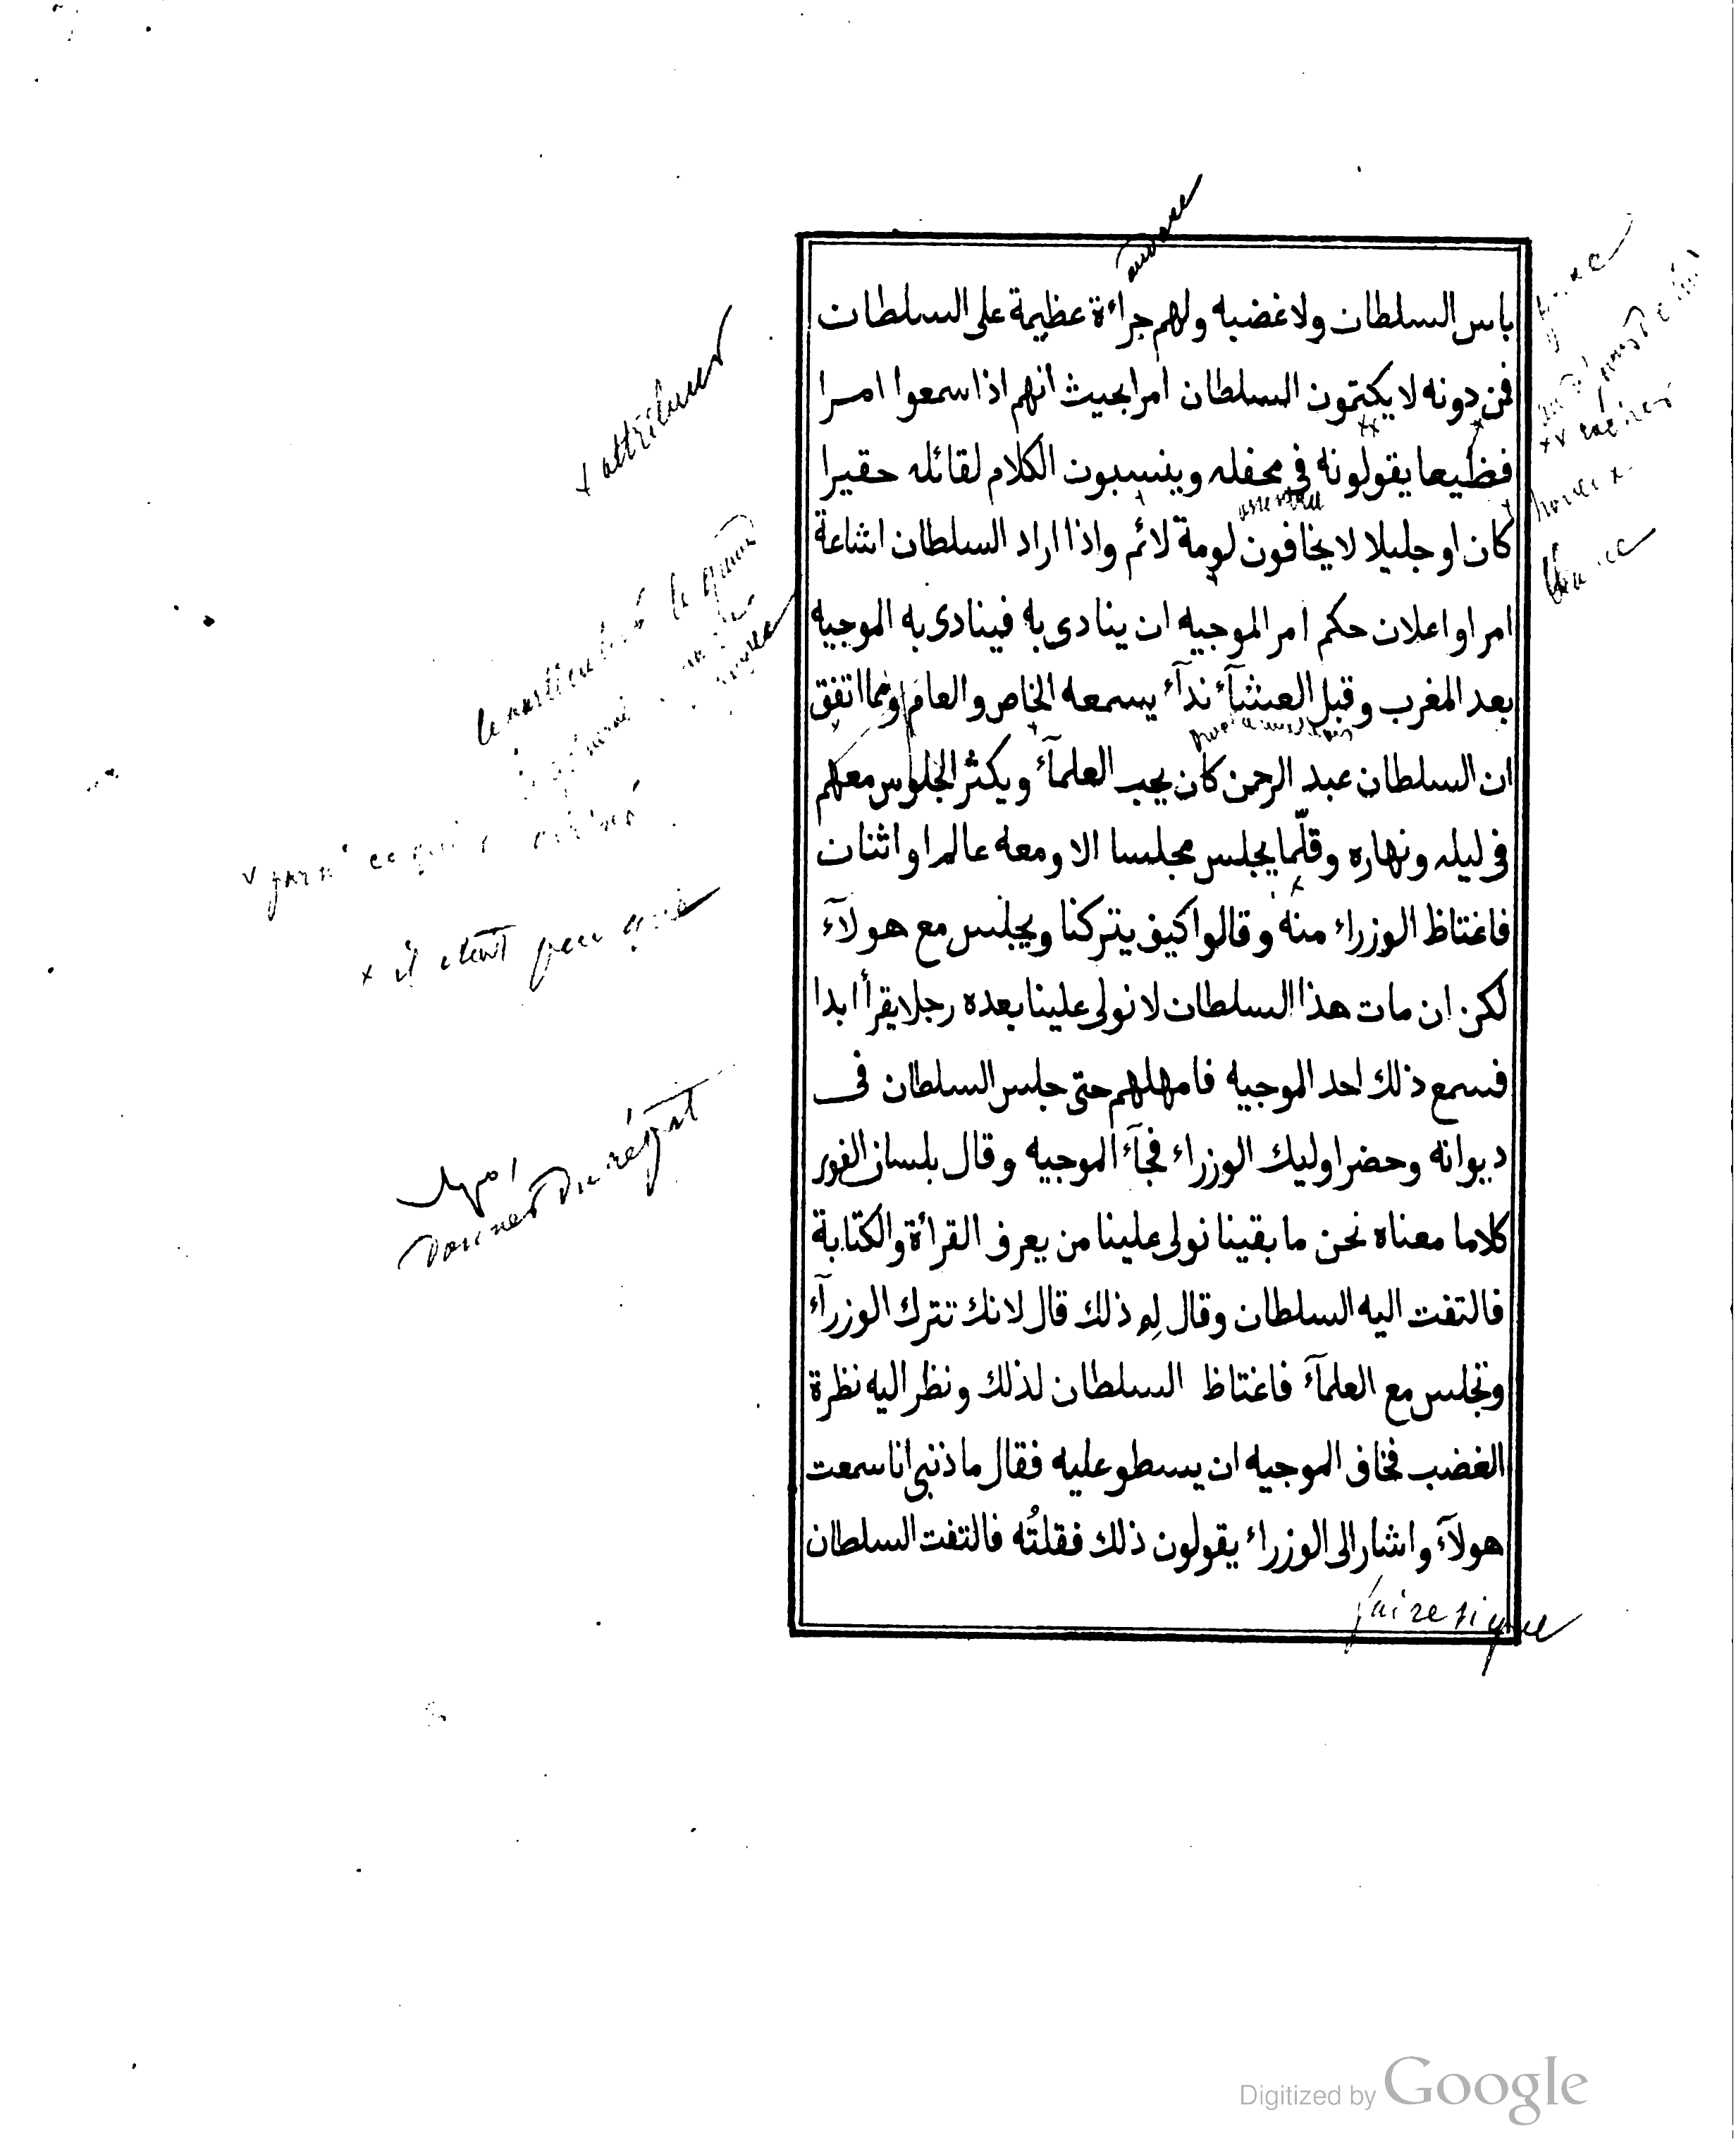 audace
باس السلطان ولا غضبه ولهم جراءة عظيمة على السلطان
فمن دونه لا يكتمون السلطان امرا بحيث انهم اذا سمعوا امرا
فظيعا يقولونه في محفله وينسبون الكلام لقائله حقيرا
كان او جليلا لا يخافون لومة لائم واذا اراد السلطان اشاعة
امرا واعلان حكم امر الموجيه ان ينادى به فينادى به الموجيه
بعد المغرب وقبل العشآء ندآء يسمعه الخاص والعام ومما اتفق
ان السلطان عبد الرحمن كان يحب العلمآء ويكثر الجلوس معهم
في ليله ونهاره وقلّما يجلس مجلسا الا ومعه عالم او اثنان
فاغتاظ الوزراء منه وقالوا كيف يتركنا ويجلس مع هولآء
لكن ان مات هذا السلطان لا نولى علينا بعده رجلا يقرأ ابدا
فسمع ذلك احد الموجيه فامهلهم حتى جلس السلطان في
ديوانه وحضر اوليك الوزراء فجآء الموجيه وقال بلسان الفور
كلاما معناه نحن ما بقينا نولى علينا من يعرف القرأة والكتابة
فالتفت اليه السلطان وقال لِم ذلك قال لانك تترك الوزرآء
وتجلس مع العلمآء فاغتاظ السلطان لذلك ونظر اليه نظرة
الغضب فخاف الموجيه ان يسطو عليه فقال ما ذنبى انا سمعت
هولآء واشار الى الوزراء يقولون ذلك فقلتُه فالتفت السلطان
faire signe
+ attribuer
x il etait peu que
امهل
donner du répit
Digitized by Google